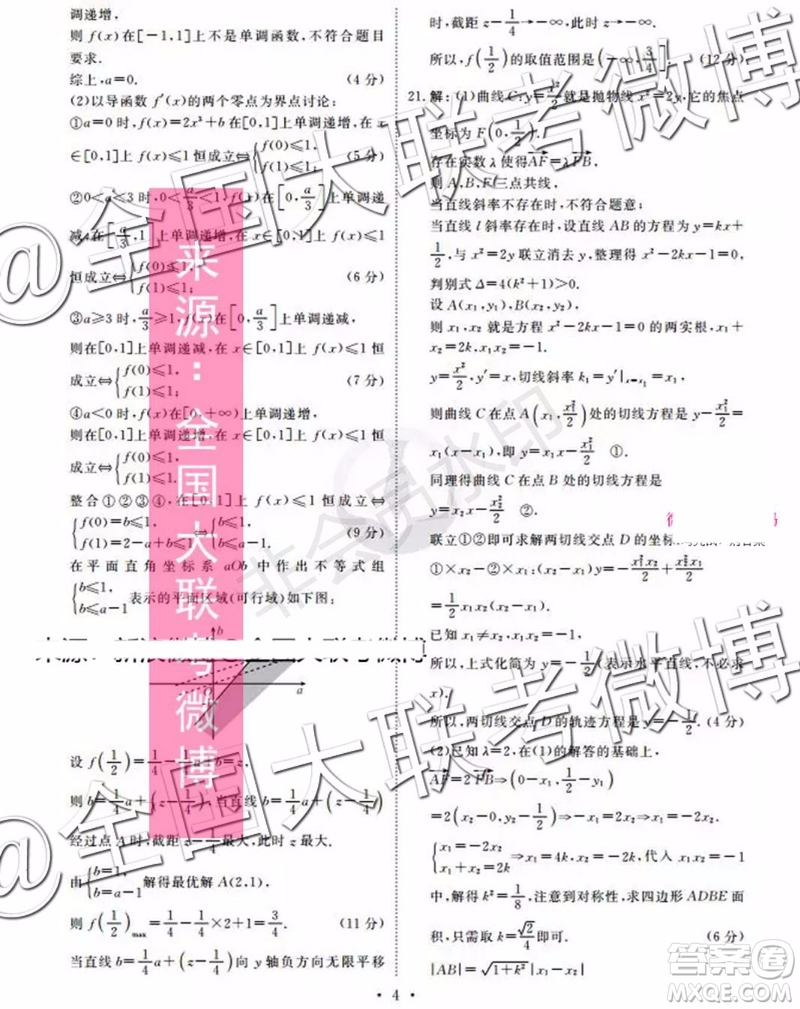 调递增,
则 f(x)在[-1,1]上不是单调函数,不符合题目
要求.
综上,a=0. (4分)
(2)以导函数 f′(x)的两个零点为界点讨论:
①a=0时,f(x)=2x³+b在[0,1]上单调递增,在x
∈[0,1]上 f(x)≤1恒成立⇔{f(0)≤1, f(1)≤1; (5分)
②0<a≤3时,0<a/3≤1,f(x)在[0,a/3]上单调递
减,在[a/3,1]上单调递增,在x∈[0,1]上 f(x)≤1
恒成立⇔{f(0)≤1, f(1)≤1; (6分)
③a≥3时,a/3≥1,f(x)在[0,a/3]上单调递减,
则在[0,1]上单调递减,在x∈[0,1]上 f(x)≤1恒
成立⇔{f(0)≤1, f(1)≤1; (7分)
④a<0时,f(x)在[0,+∞)上单调递增,
则在[0,1]上单调递增,在x∈[0,1]上 f(x)≤1恒
成立⇔{f(0)≤1, f(1)≤1.
整合①②③④,在[0,1]上 f(x)≤1恒成立⇔
{f(0)=b≤1, f(1)=2-a+b≤1⇔{b≤1, b≤a-1. (9分)
在平面直角坐标系 aOb 中作出不等式组
{b≤1, b≤a-1表示的平面区域(可行域)如下图:
b
a
设 f(1/2)=1/4-1/4a+b=z.
则b=1/4a+(z-1/4),当直线b=1/4a+(z-1/4)
经过点A时,截距z-1/4最大,此时z最大.
由{b=1, b=a-1解得最优解A(2,1).
则 f(1/2)max=1/4-1/4×2+1=3/4. (11分)
当直线b=1/4a+(z-1/4)向y轴负方向无限平移
时,截距z-1/4→-∞,此时z→-∞.
所以,f(1/2)的取值范围是(-∞,3/4]. (12分)
21.解:(1)曲线C:y=x²/2就是抛物线x²=2y,它的焦点
坐标为F(0,1/2).
存在实数λ使得AF=λFB,
则A,B,F三点共线,
当直线斜率不存在时,不符合题意;
当直线l斜率存在时,设直线AB的方程为y=kx+
1/2,与x²=2y联立消去y,整理得x²-2kx-1=0,
判别式Δ=4(k²+1)>0.
设A(x₁,y₁),B(x₂,y₂),
则x₁,x₂就是方程x²-2kx-1=0的两实根,x₁+
x₂=2k,x₁x₂=-1.
y=x²/2,y′=x,切线斜率k₁=y′|x=x₁=x₁,
则曲线C在点A(x₁,x₁²/2)处的切线方程是y-x₁²/2=
x₁(x-x₁),即y=x₁x-x₁²/2 ①.
同理得曲线C在点B处的切线方程是
y=x₂x-x₂²/2 ②.
联立①②即可求解两切线交点D的坐标
①×x₂-②×x₁得(x₂-x₁)y=-x₁²x₂/2+x₁x₂²/2.
已知x₁≠x₂,x₁x₂=-1.
所以,上式化简为y=-1/2(表示水平直线,不含
x).
所以,两切线交点D的轨迹方程是y=-1/2. (4分)
(2)已知λ=2,在(1)的解答的基础上,
AF=2FB⇒(0-x₁,1/2-y₁)
=2(x₂-0,y₂-1/2)⇒-x₁=2x₂.
{x₁=-2x₂, x₁+x₂=2k⇒x₁=4k,x₂=-2k,代入x₁x₂=-1
中,解得k²=1/8,注意到对称性,求四边形ADBE面
积,只需取k=√2/4即可. (6分)
|AB|=√1+k²|x₁-x₂|
· 4 ·
@全国大联考微博
@全国大联考微博
@全国大联考微博
来源:全国大联考微博
非会员水印
答案圈
MXQE.COM